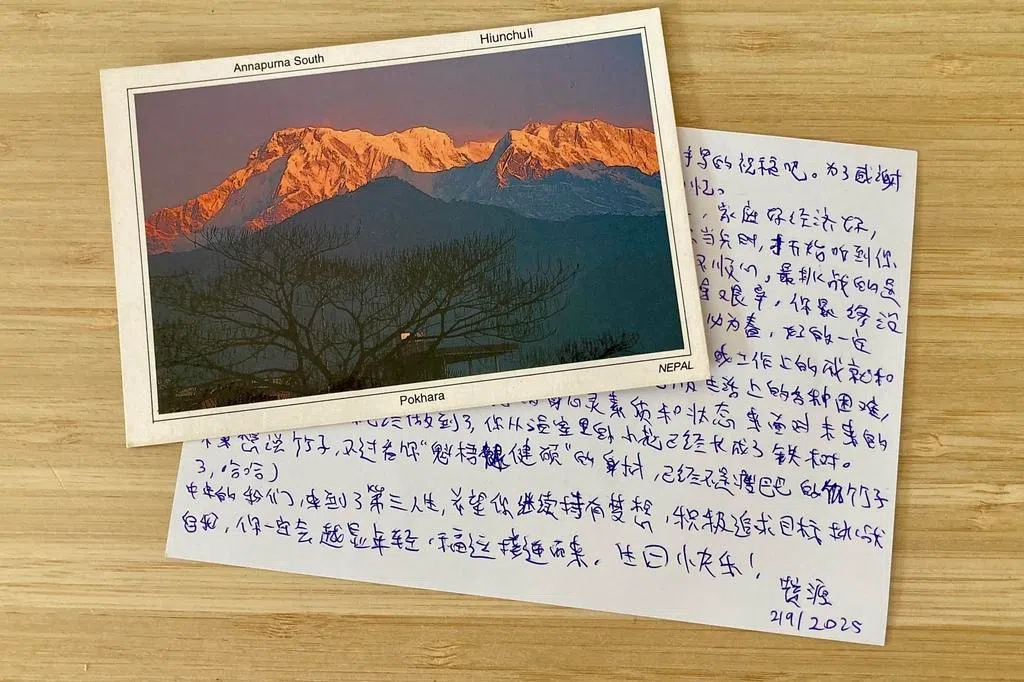 Annapurna South
Hiunchuli
NEPAL
Pokhara
手写的祝福吧。为了感谢
忆。
，家庭好经济好，
当先时，才开始听到你
不顺心，最挑战的是
艰辛，你最终没
以为畜，好的一定
工作上的成就和
生活上的各种困难，
心灵素质和状态来面对未来的
做到了，你从温室里的小花已经长成了铁树。
本来想说竹子，不过看你“魁梧健硕”的身材，已经不是瘦巴巴的竹子
了，哈哈）
中央的我们，来到了第三人生，希望你继续持有梦想，积极追求目标挑战
自我，你一定会越显年轻，福运接连而来，生日快乐！
2/9/2025